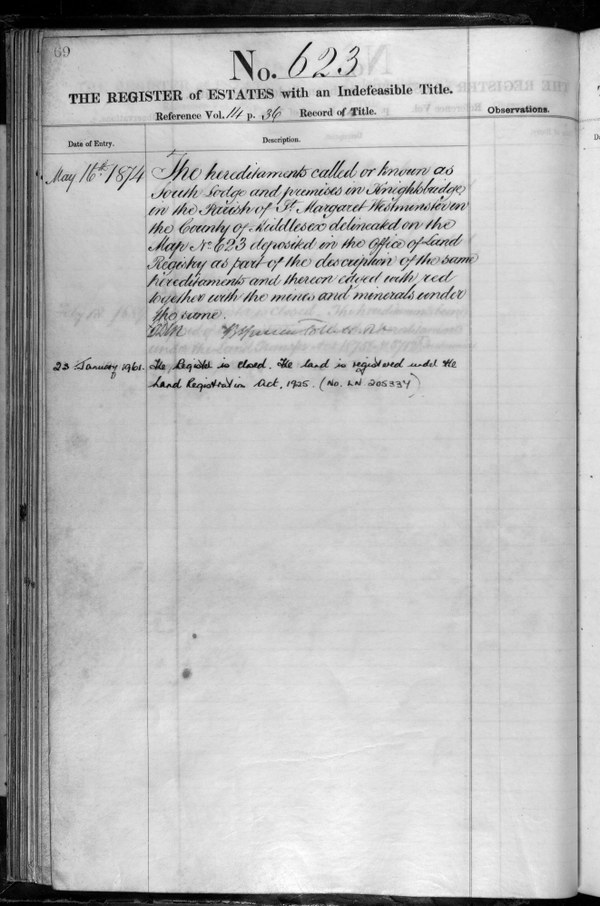 69
No. 623
THE REGISTER of ESTATES with an Indefeasible Title.
Reference Vol. 14 p. 36 Record of Title.
Observations.
Date of Entry.
Description.
May 16th 1874
The hereditaments called or known as
South Lodge and premises in Knightsbridge
in the Parish of St. Margaret Westminster in
the County of Middlesex delineated on the
Map No 623 deposited in the Office of Land
Registry as part of the description of the same
hereditaments and thereon edged with red
together with the mines and minerals under
the same.
23 January 1961. The Register is closed. The land is registered under the
Land Registration Act, 1925. (No. LN 205334)